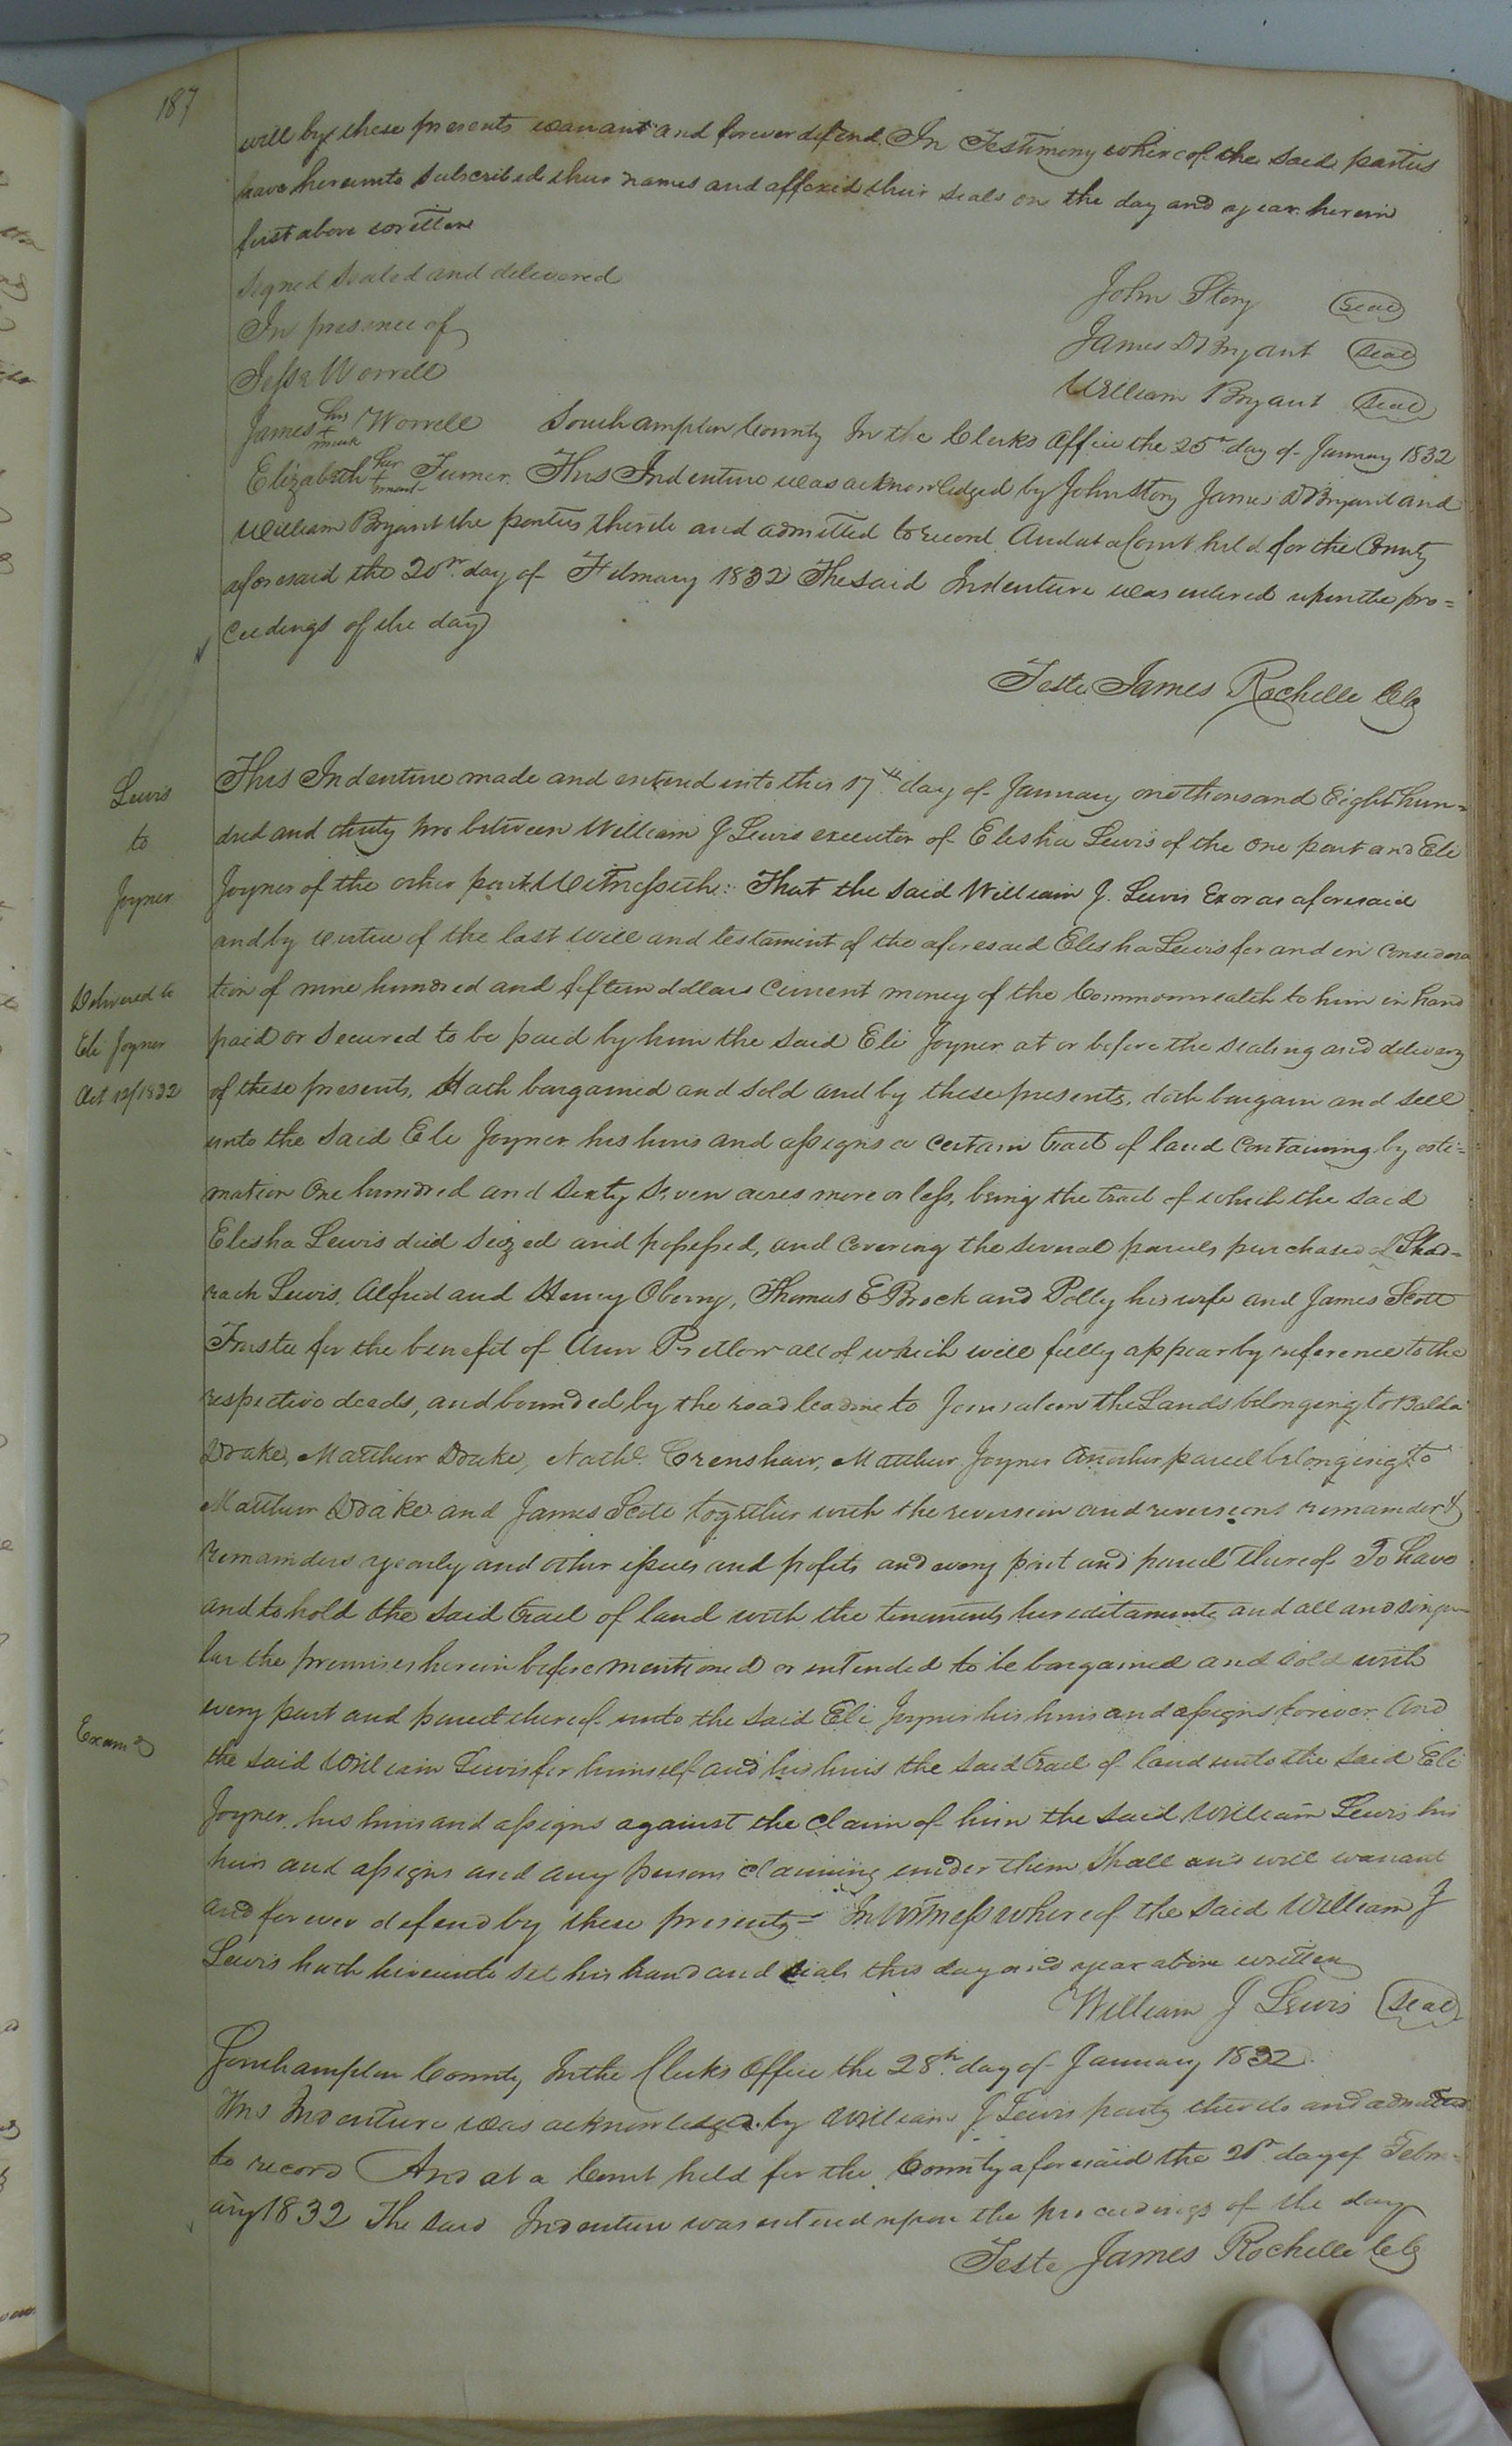 187
will by these presents warrant and forever defend. In Testimony whereof the said parties
have hereunto Subscribed their names and affixed their seals on the day and year herein
first above written
Signed Sealed and delivered
In presence of
Jesse Worrell
James his + mark Worrell
Elizabeth her + mark Turner
John Story Seal
James D Bryant Seal
William Bryant Seal
Southampton County In the Clerks Office the 25th day of January 1832
This Indenture was acknowledged by John Story James D Bryant and
William Bryant the parties thereto and admitted to record. And at a Court held for the County
aforesaid the 20th day of February 1832 The said Indenture was entered upon the pro=
ceedings of the day
Teste James Rochelle Clk
Lewis
to
Joyner
Delivered to
Eli Joyner
Oct 12/1832
Examd
This Indenture made and entered into this 17th day of January one thousand Eight hun=
dred and thirty two between William J Lewis executor of Elisha Lewis of the one part and Eli
Joyner of the other part Witnesseth: That the said William J. Lewis Exor as aforesaid
and by virtue of the last will and testament of the aforesaid Elisha Lewis for and in considera
tion of nine hundred and fifteen dollars Current money of the Commonwealth to him in hand
paid or Secured to be paid by him the said Eli Joyner at or before the sealing and delivery
of these presents, Hath bargained and sold and by these presents, doth bargain and sell
unto the said Eli Joyner his heirs and assigns a certain tract of land Containing by esti=
mation One hundred and Sixty Seven acres more or less, being the tract of which the said
Elisha Lewis died Seized and possessed, and covering the several parcels purchased of Shad=
rach Lewis, Alfred and Henry Oberry, Thomas E Brock and Polly his wife and James Scott
Trustee for the benefit of Ann Pretlow all of which will fully appear by reference to the
respective deeds, and bounded by the road leading to Jerusalem the Lands belonging to
Drake, Matthew Drake, Nathl Crenshaw, Matthew Joyner another parcel belonging to
Matthew Drake and James Scott together with the reversion and reversions remainder &
remainders yearly and other issues and profits and every part and parcel thereof To have
and to hold the said tract of land with the tenements hereditaments and all and singu=
lar the premises herein before mentioned or intended to be bargained and sold with
every part and parcel thereof unto the said Eli Joyner his heirs and assigns forever And
the said William Lewis for himself and his heirs the said tract of land unto the said Eli
Joyner, his heirs and assigns against the claim of him the said William Lewis his
heirs and assigns and any persons claiming under them Shall and will warrant
and forever defend by these presents= In Witness whereof the said William J
Lewis hath hereunto set his hand and seals this day and year above written
William J Lewis Seal
Southampton County In the Clerks Office the 28th day of January 1832.
This Indenture was acknowledged by William J Lewis party thereto and admitted
to record And at a Court held for the County aforesaid the 20th day of Febru=
ary 1832 The said Indenture was entered upon the proceedings of the day
Teste James Rochelle Clk